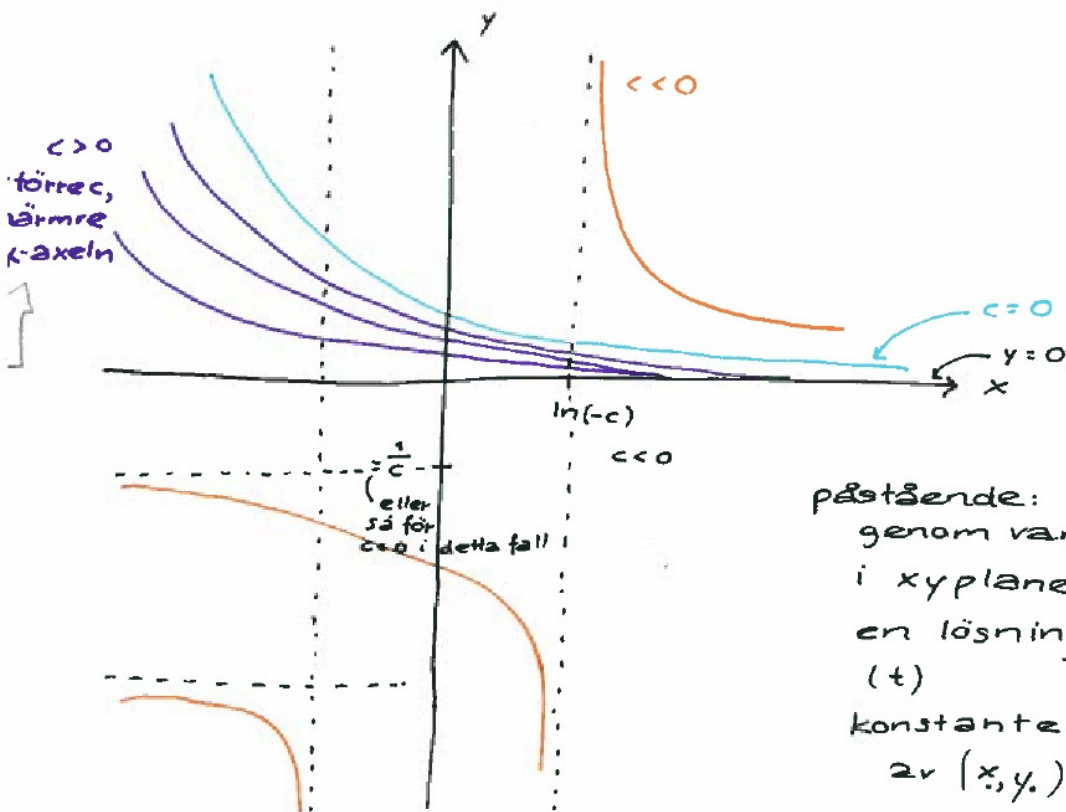 y
c<0
c>0
större c,
närmre
x-axeln
c=0
y=0
x
ln(-c)
c<0
1/c
(eller
så för
c<0 i detta fall
påstående:
genom var
i xyplane
en lösnin
(t)
konstante
av (x₀,y₀)